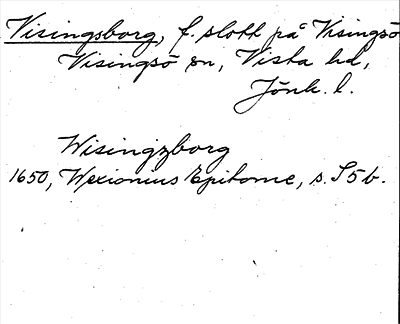 Visingsborg, f. slott på Visingsö
Visingsö sn, Vista hd,
Jönk. l.
Wisingzborg
1650, Wexionius Epitome, s. S5b.